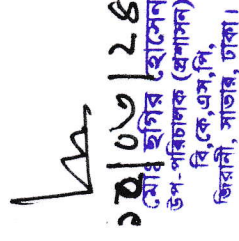 ১৪|০৩|২৪
মোঃ ছগির হোসেন
উপ-পরিচালক (প্রশাসন)
বি,কে,এস,পি,
জিরানী, সাভার, ঢাকা।